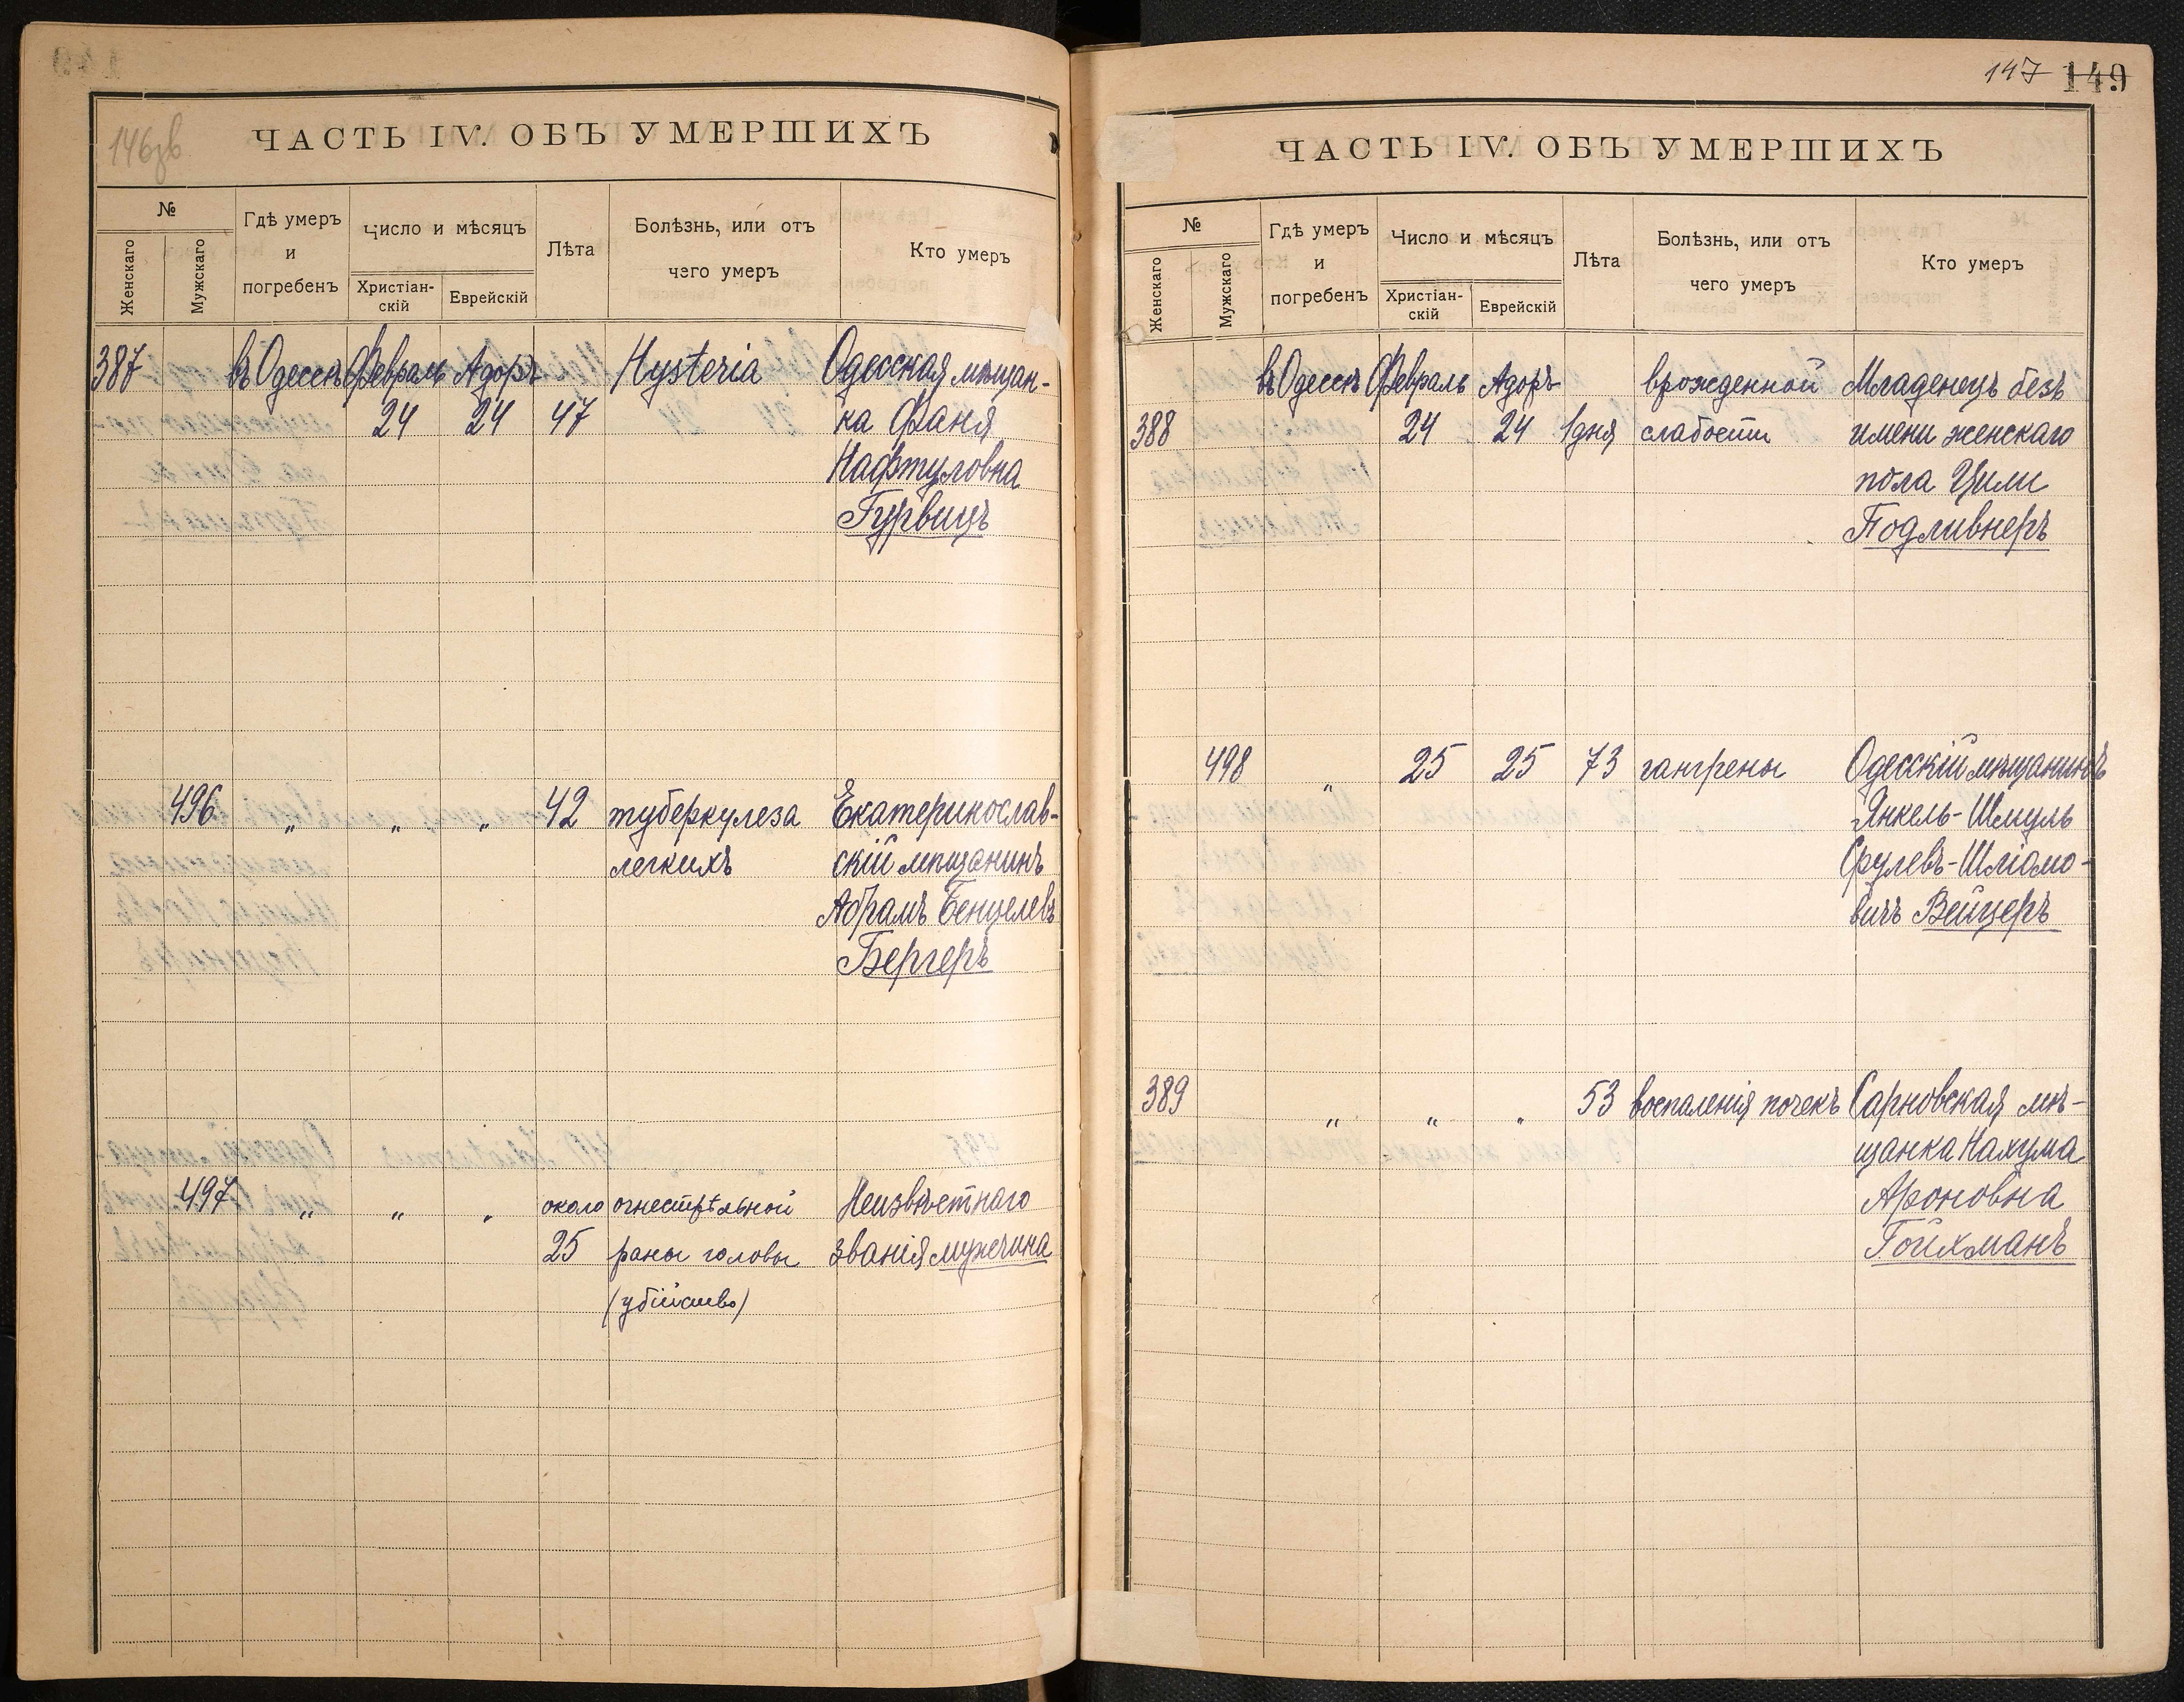 146зв
ЧАСТЬ IV. ОБЪ УМЕРШИХЪ
№
Женскаго
Мужскаго
Гдѣ умеръ
и
погребенъ
Число и мѣсяцъ
Христіан-
скій
Еврейскій
Лѣта
Болѣзнь, или отъ
чего умеръ
Кто умеръ
387 въ Одессѣ Февраль Адоръ Hysteria Одесская мѣщан-
24 24 47 ка Фаня
Нафтуловна
Гурвицъ
496 „ „ „ 42 туберкулеза Екатеринослав-
легкихъ скій мѣщанинъ
Абрамъ Бенцелевъ
Бергеръ
497 „ „ „ около огнестрѣльной Неизвѣстнаго
25 раны головы званія мужчина
(убійство)
147 149
ЧАСТЬ IV. ОБЪ УМЕРШИХЪ
№
Женскаго
Мужскаго
Гдѣ умеръ
и
погребенъ
Число и мѣсяцъ
Христіан-
скій
Еврейскій
Лѣта
Болѣзнь, или отъ
чего умеръ
Кто умеръ
въ Одессѣ Февраль Адоръ врожденной Младенецъ безъ
388 24 24 1 дня слабости имени женскаго
пола Цили
Подливнеръ
498 „ 25 25 73 гангрены Одесскій мѣщанинъ
Янкель-Шмуль
Срулевъ-Шліомо-
вичъ Вейцеръ
389 „ „ „ 53 воспаленія почекъ Сарновская мѣ-
щанка Нахума
Ароновна
Гойхманъ